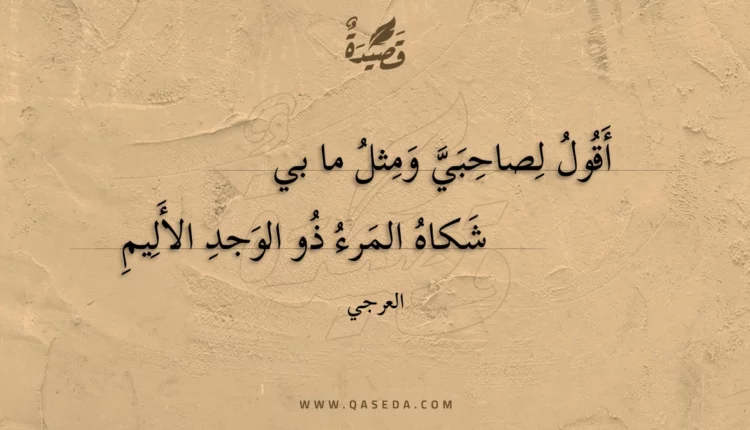 قَصِيْدَةٌ
أَقُولُ لِصاحِبَيَّ وَمِثلُ ما بي
شَكاهُ المَرءُ ذُو الوَجدِ الأَلِيمِ
العرجي
WWW.QASEDA.COM